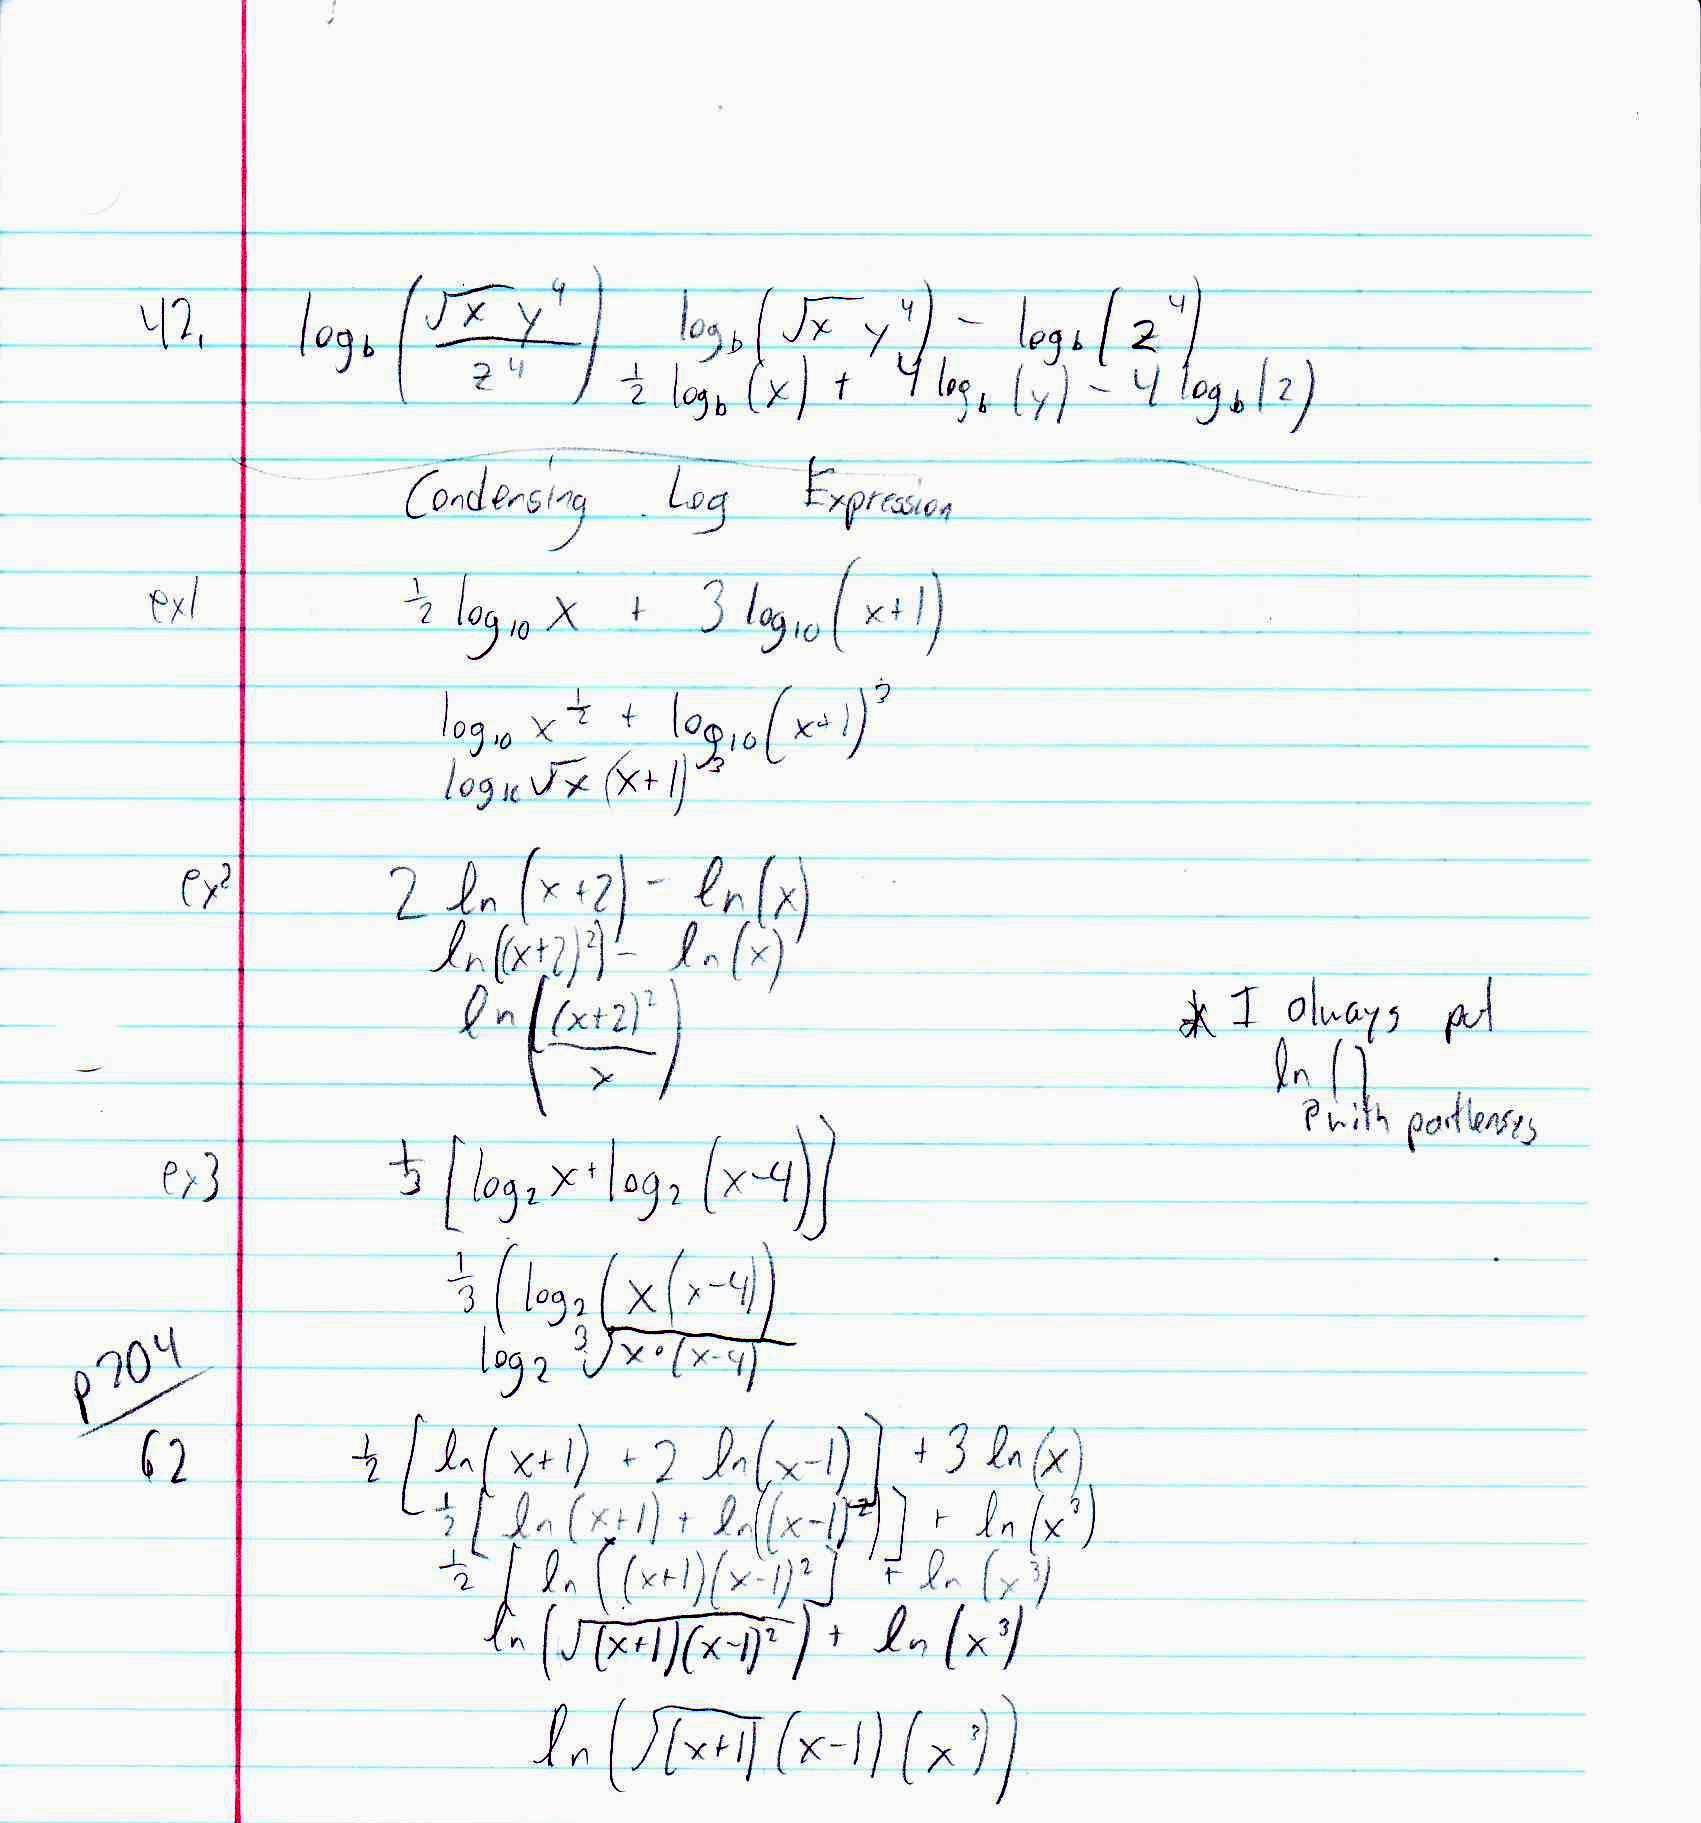 42. log_b (√x y^4 / z^4) log_b (√x y^4) - log_b (z^4)
1/2 log_b (x) + 4 log_b (y) - 4 log_b (z)
Condensing Log Expression
ex1 1/2 log_10 x + 3 log_10 (x+1)
log_10 x^1/2 + log_10 (x+1)^3
log_10 √x (x+1)^3
ex2 2 ln (x+2) - ln (x)
ln((x+2)^2) - ln (x)
ln ((x+2)^2 / x)
* I always put
ln ()
with
ex3 1/3 [log_2 x + log_2 (x-4)]
1/3 (log_2 (x (x-4))
log_2 ∛(x•(x-4))
p204
62 1/2 [ln (x+1) + 2 ln (x-1)] + 3 ln (x)
1/2 [ln (x+1) + ln((x-1)^2)] + ln (x^3)
1/2 [ln ((x+1)(x-1)^2] + ln (x^3)
ln (√((x+1)(x-1)^2)) + ln (x^3)
ln (√(x+1) (x-1) (x^3))